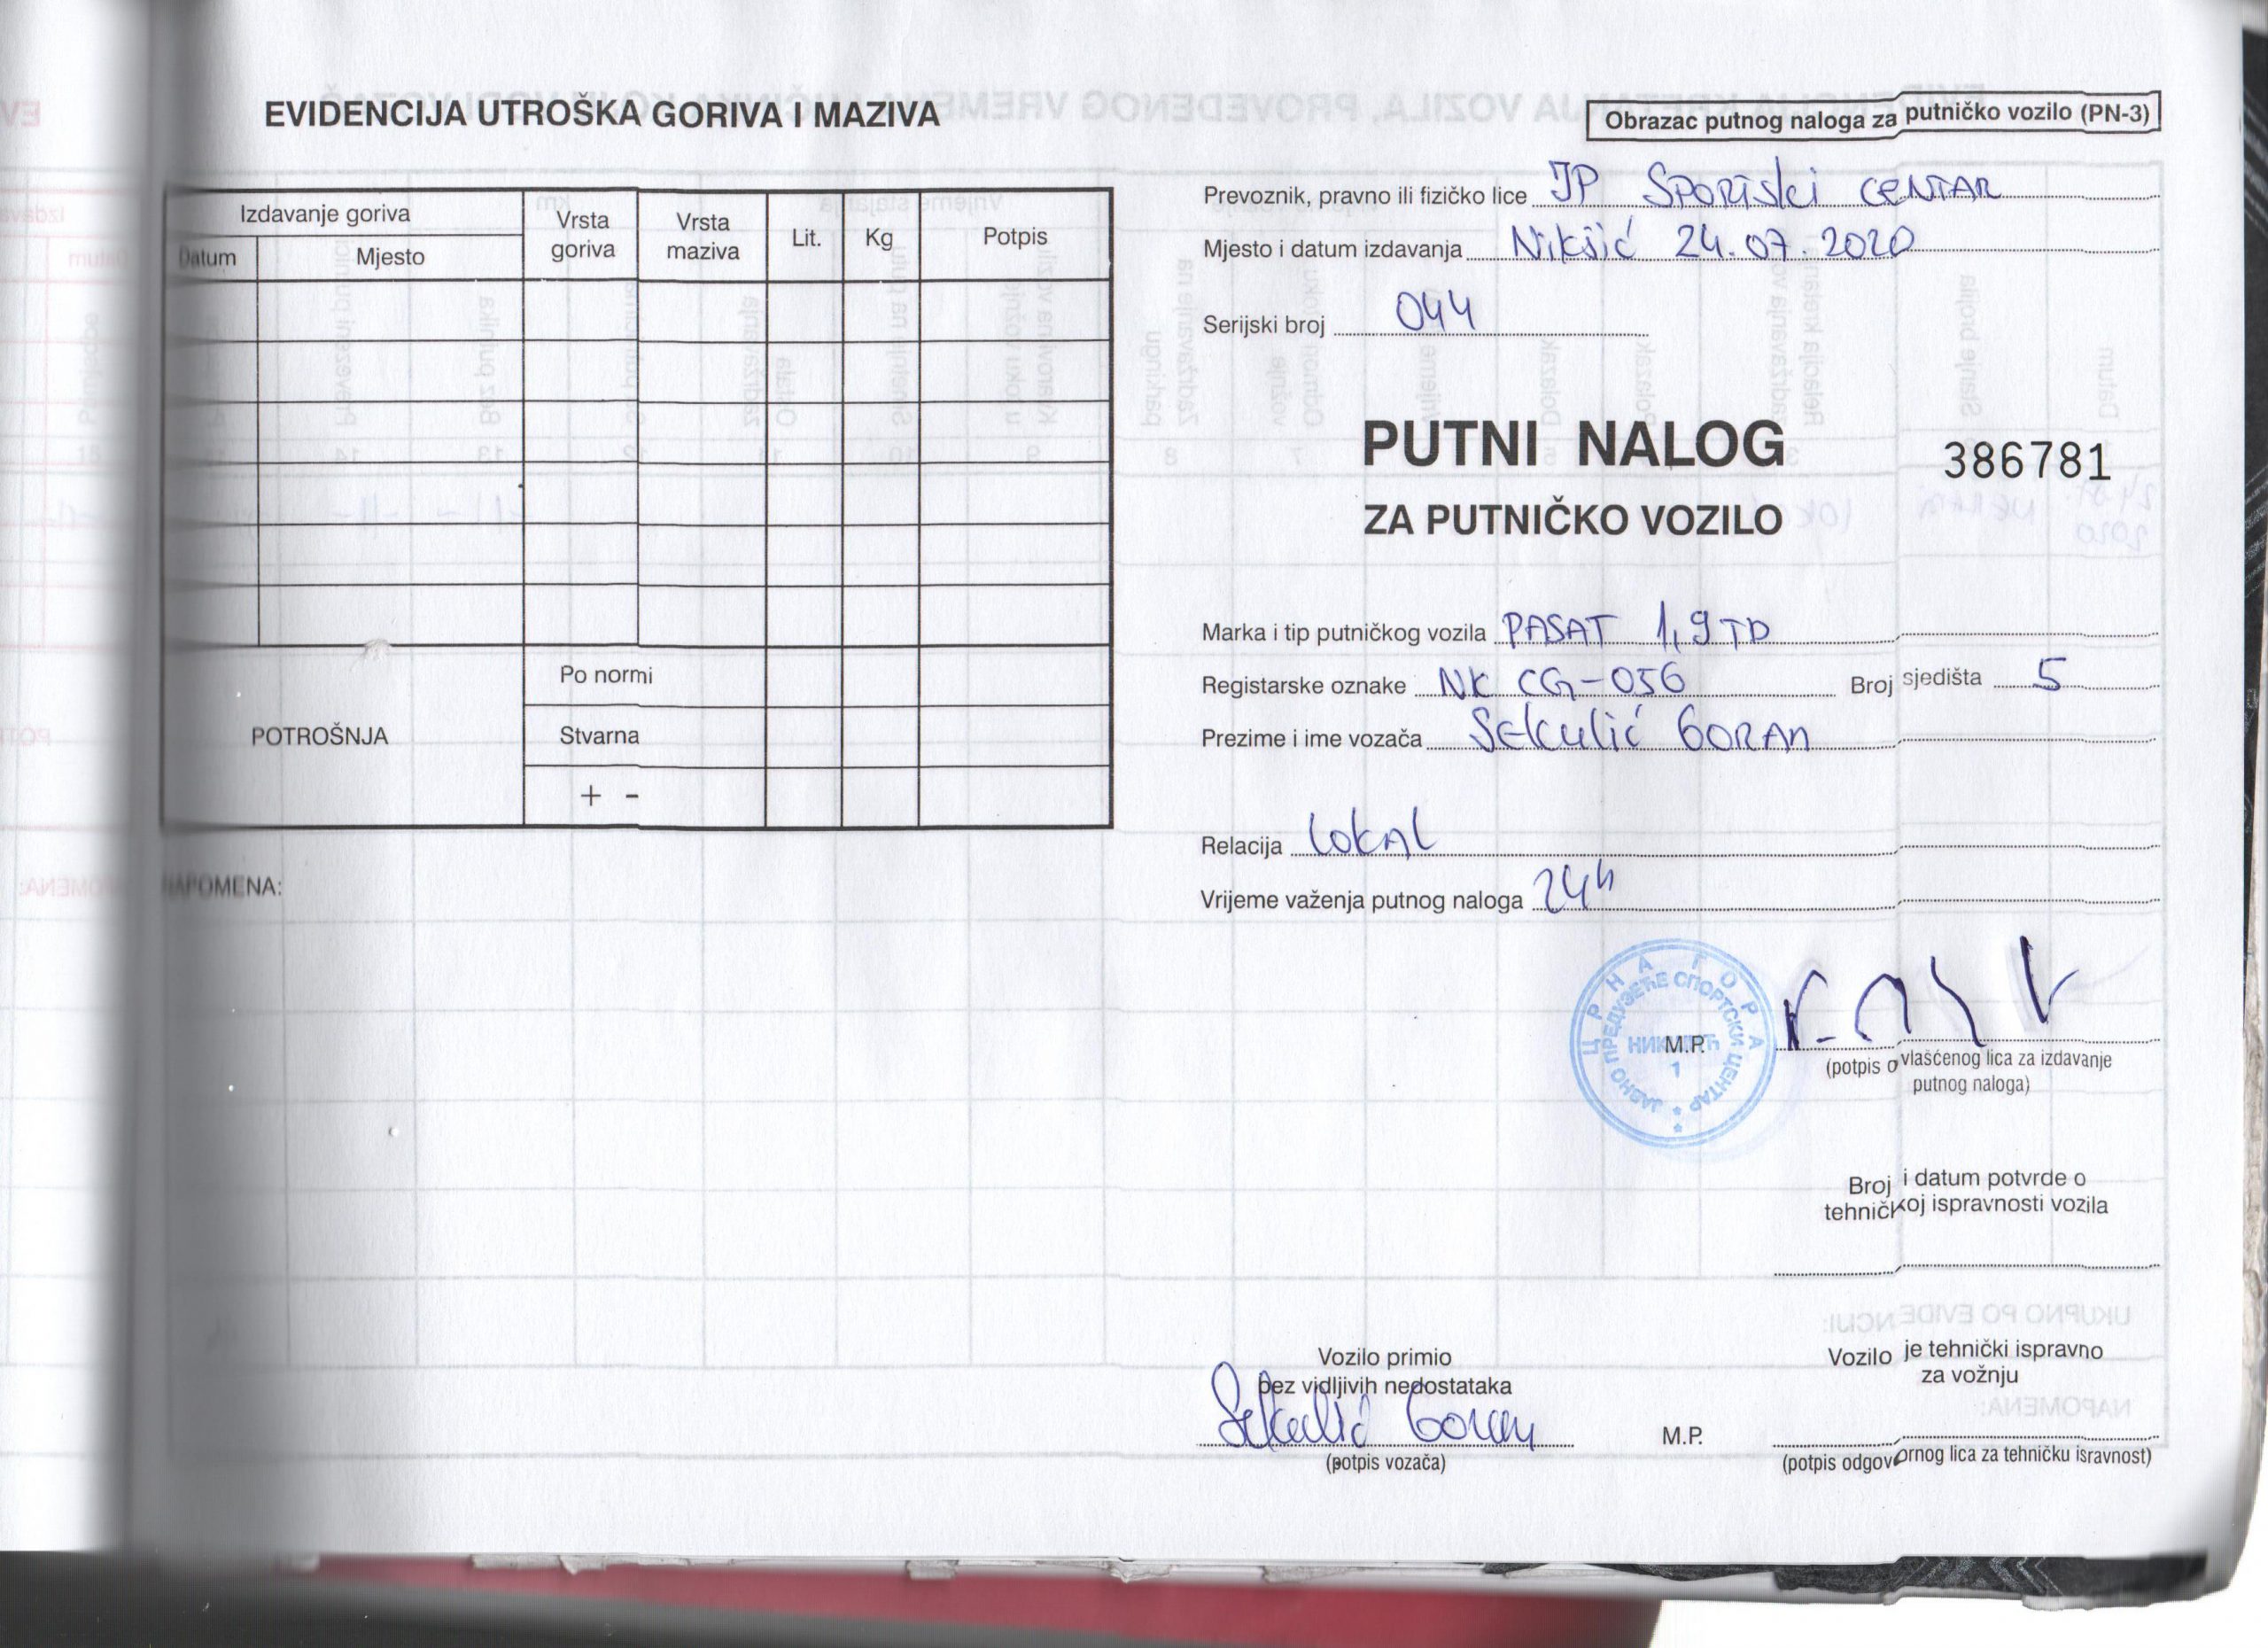 EVIDENCIJA UTROŠKA GORIVA I MAZIVA
Izdavanje goriva
Datum
Mjesto
Vrsta goriva
Vrsta maziva
Lit.
Kg
Potpis
POTROŠNJA
Po normi
Stvarna
+ -
NAPOMENA:
Obrazac putnog naloga za putničko vozilo (PN-3)
Prevoznik, pravno ili fizičko lice JP SPORTSKI CENTAR
Mjesto i datum izdavanja Nikšić 24.07.2020
Serijski broj 044
PUTNI NALOG
386781
ZA PUTNIČKO VOZILO
Marka i tip putničkog vozila PASAT 1,9 TD
Registarske oznake NK CG-056 Broj sjedišta 5
Prezime i ime vozača Sekulić GORAN
Relacija LOKAL
Vrijeme važenja putnog naloga 24h
ЦРНА ГОРА
ЈАВНО ПРЕДУЗЕЋЕ СПОРТСКИ ЦЕНТАР
НИКШИЋ
1
M.P.
(potpis ovlašćenog lica za izdavanje
putnog naloga)
Broj i datum potvrde o
tehničkoj ispravnosti vozila
Vozilo primio
bez vidljivih nedostataka
Sekulić Goran
(potpis vozača)
M.P.
Vozilo je tehnički ispravno
za vožnju
(potpis odgovornog lica za tehničku isravnost)